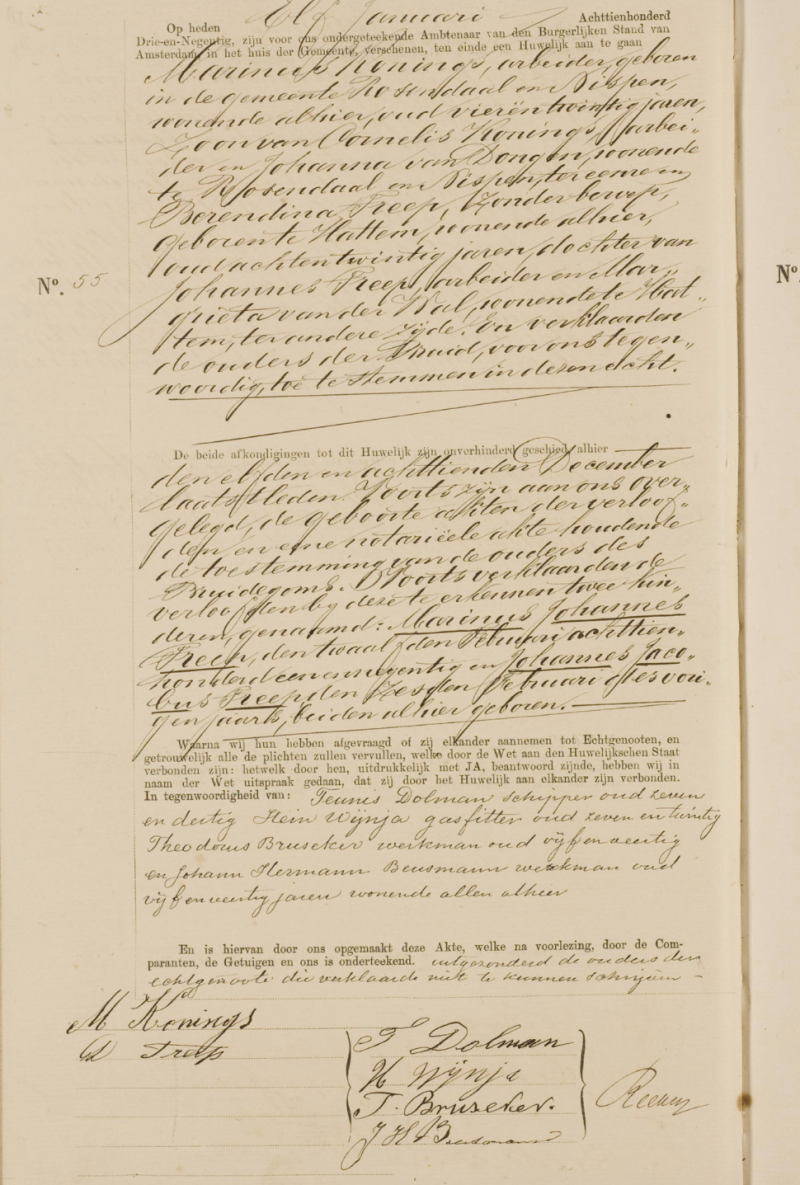 Elf Januari Achttienhonderd
Op heden
Drie-en-Negentig, zijn voor ons ondergeteekende Ambtenaar van den Burgerlijken Stand van
Amsterdam, in het huis der Gemeente, verschenen, ten einde een Huwelijk aan te gaan
Marinus Konings, arbeider, geboren
in de gemeente Rosendaal en Nispen,
wonende alhier, oud vierentwintig jaren,
Zoon van Cornelis Konings, arbei-
der en Johanna van Dongen, wonende
te Rosendaal en Nispen, ter eene en
Berendina Treep, Zonder beroep,
geboren te Hattem, wonende alhier,
oud achtentwintig jaren, dochter van
Nº. 55
Johannes Treep, arbeider en Mar-
grieta van der Wal, wonende te Hat-
tem, ter andere zijde. En verklaarden
de ouders der Bruid, voor ons tegen-
woordig, toe te stemmen in dezen acht.
De beide afkondigingen tot dit Huwelijk zijn onverhinderd geschied alhier
den elfden en achttienden December
laatstleden. Voorts zijn aan ons over-
gelegd, de geboorte akten der verloof-
den en eene notariëele akte houdende
de toestemming van de ouders des
Bruidegoms. Voorts verklaarden de
verloofden bij deze te erkennen twee kin-
deren, genaamd: Marinus Johannes
Treep, den twaalfden Februari achttien-
honderd eenennegentig en Johannes Jaco-
bus Treep den Zesden Februari des vori-
gen jaars, beiden alhier geboren.
Waarna wij hun hebben afgevraagd of zij elkander aannemen tot Echtgenooten, en
getrouwelijk alle de plichten zullen vervullen, welke door de Wet aan den Huwelijkschen Staat
verbonden zijn: hetwelk door hen, uitdrukkelijk met JA, beantwoord zijnde, hebben wij in
naam der Wet uitspraak gedaan, dat zij door het Huwelijk aan elkander zijn verbonden.
In tegenwoordigheid van: Teunis Dolman schipper oud zeven
en dertig Hein Wijnja gasfitter oud zeven en twintig
Theodorus Bruseker werkman oud vijf en veertig
en Johann Hermann Beusmann werkman oud
vijf en veertig jaren wonende allen alhier
En is hiervan door ons opgemaakt deze Akte, welke na voorlezing, door de Com-
paranten, de Getuigen en ons is onderteekend. uitgezonderd de ouders der
echtgenoote die verklaarde niet te kunnen schrijven
M Konings
Treep
T Dolman
H Wijnja
T. Bruseker.
J H Beusmann
Nº.